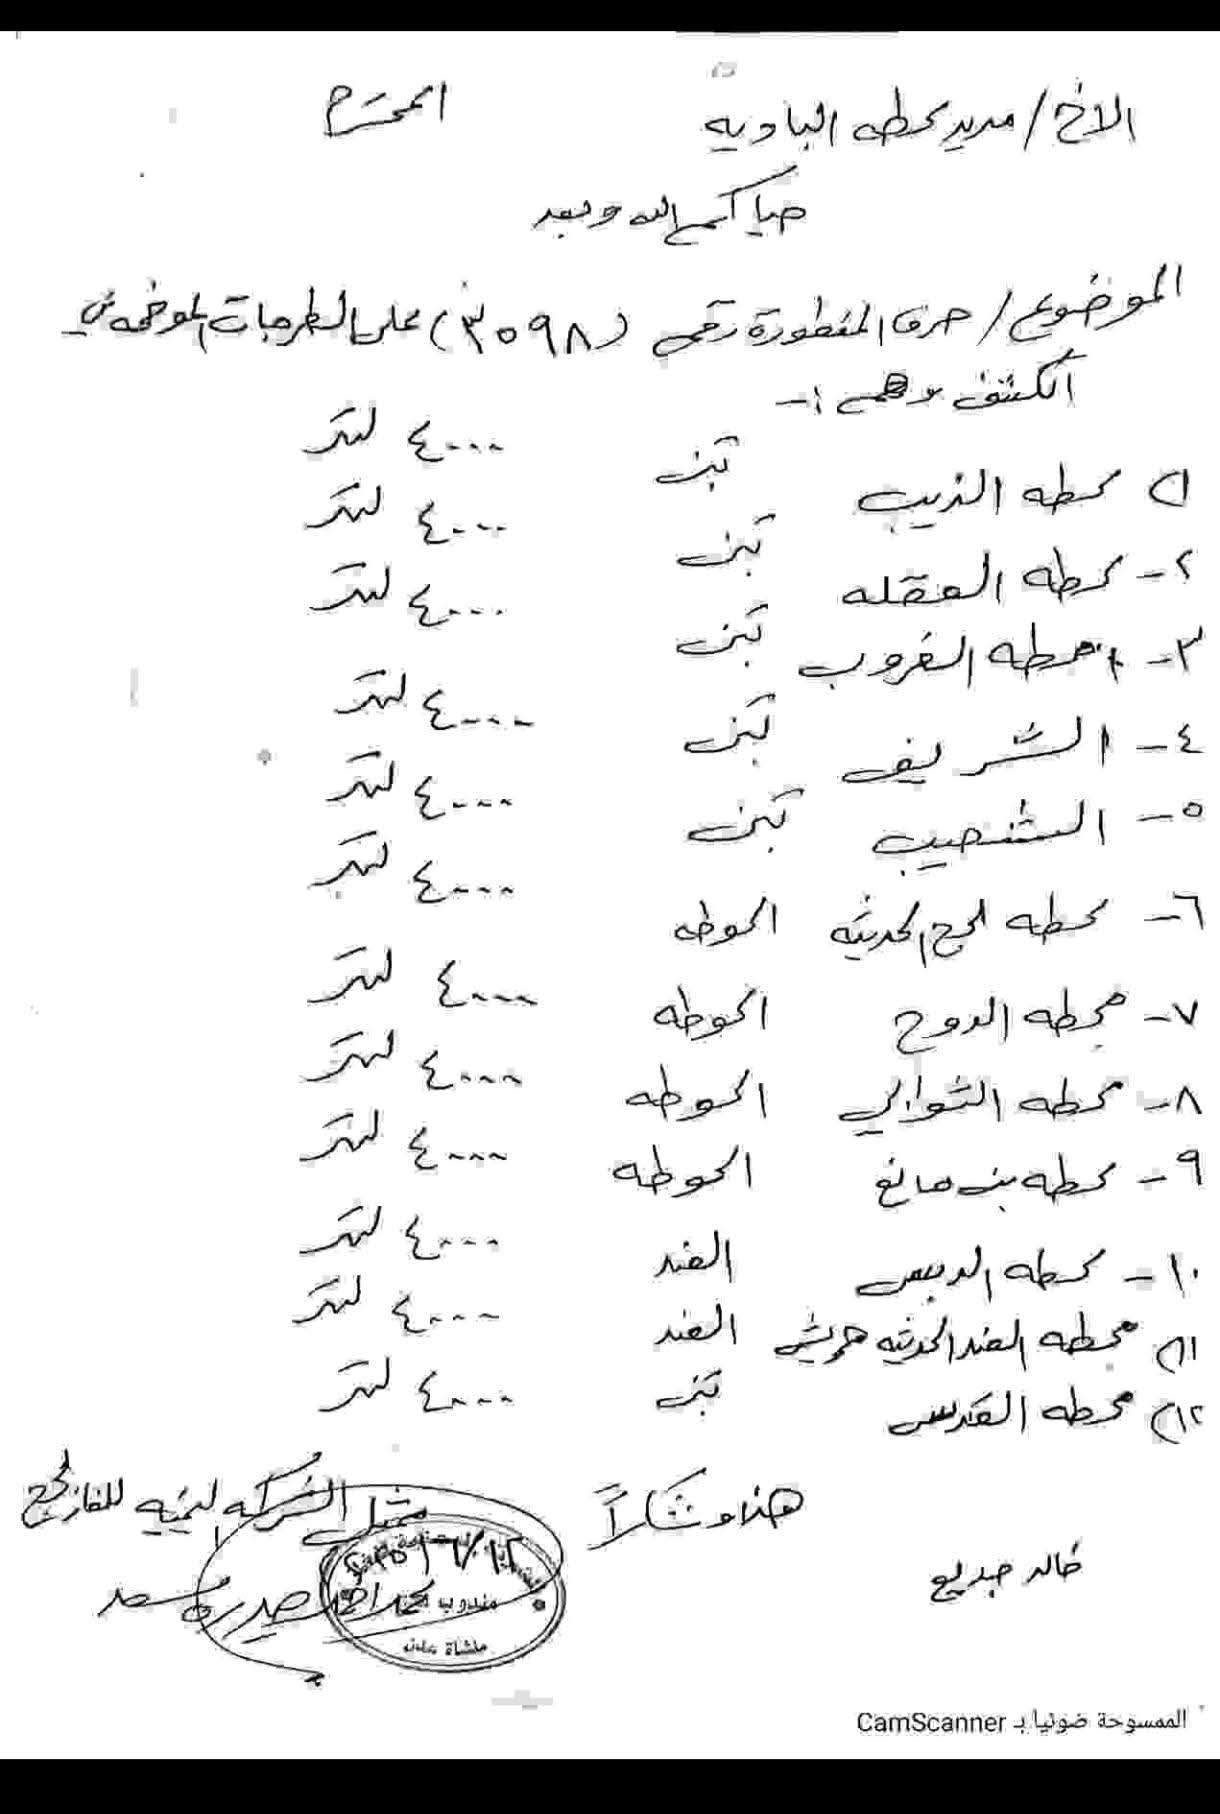 الاخ / مدير محطه الباديه المحترم
حياكم الله وبعد
الموضوع / صرف المقطورة رقم (٣٥٩٨) على الطرمبات الموضحه في
الكشف وهم :-
١) محطه الذيب تبن ٤٠٠٠ لتر
٢- محطه العقله تبن ٤٠٠٠ لتر
٣- محطه الغروب تبن ٤٠٠٠ لتر
٤- الشريف تبن ٤٠٠٠ لتر
٥- الشنصيب تبن ٤٠٠٠ لتر
٦- محطه لحج الحديثه الحوطه ٤٠٠٠ لتر
٧- محطه الدوح الحوطه ٤٠٠٠ لتر
٨- محطه الثوابي الحوطه ٤٠٠٠ لتر
٩- محطه بن مانع الحوطه ٤٠٠٠ لتر
١٠- محطه الدبيس الفند ٤٠٠٠ لتر
١١) محطه الفند الحديثه الفند ٤٠٠٠ لتر
١٢) محطه القدس تبن ٤٠٠٠ لتر
هذا وشكراً
ممثل الشركه اليمنيه للغاز لحج
خالد جديع
محمد احمد
مندوب
منشاة عدن
الممسوحة ضوئيا بـ CamScanner